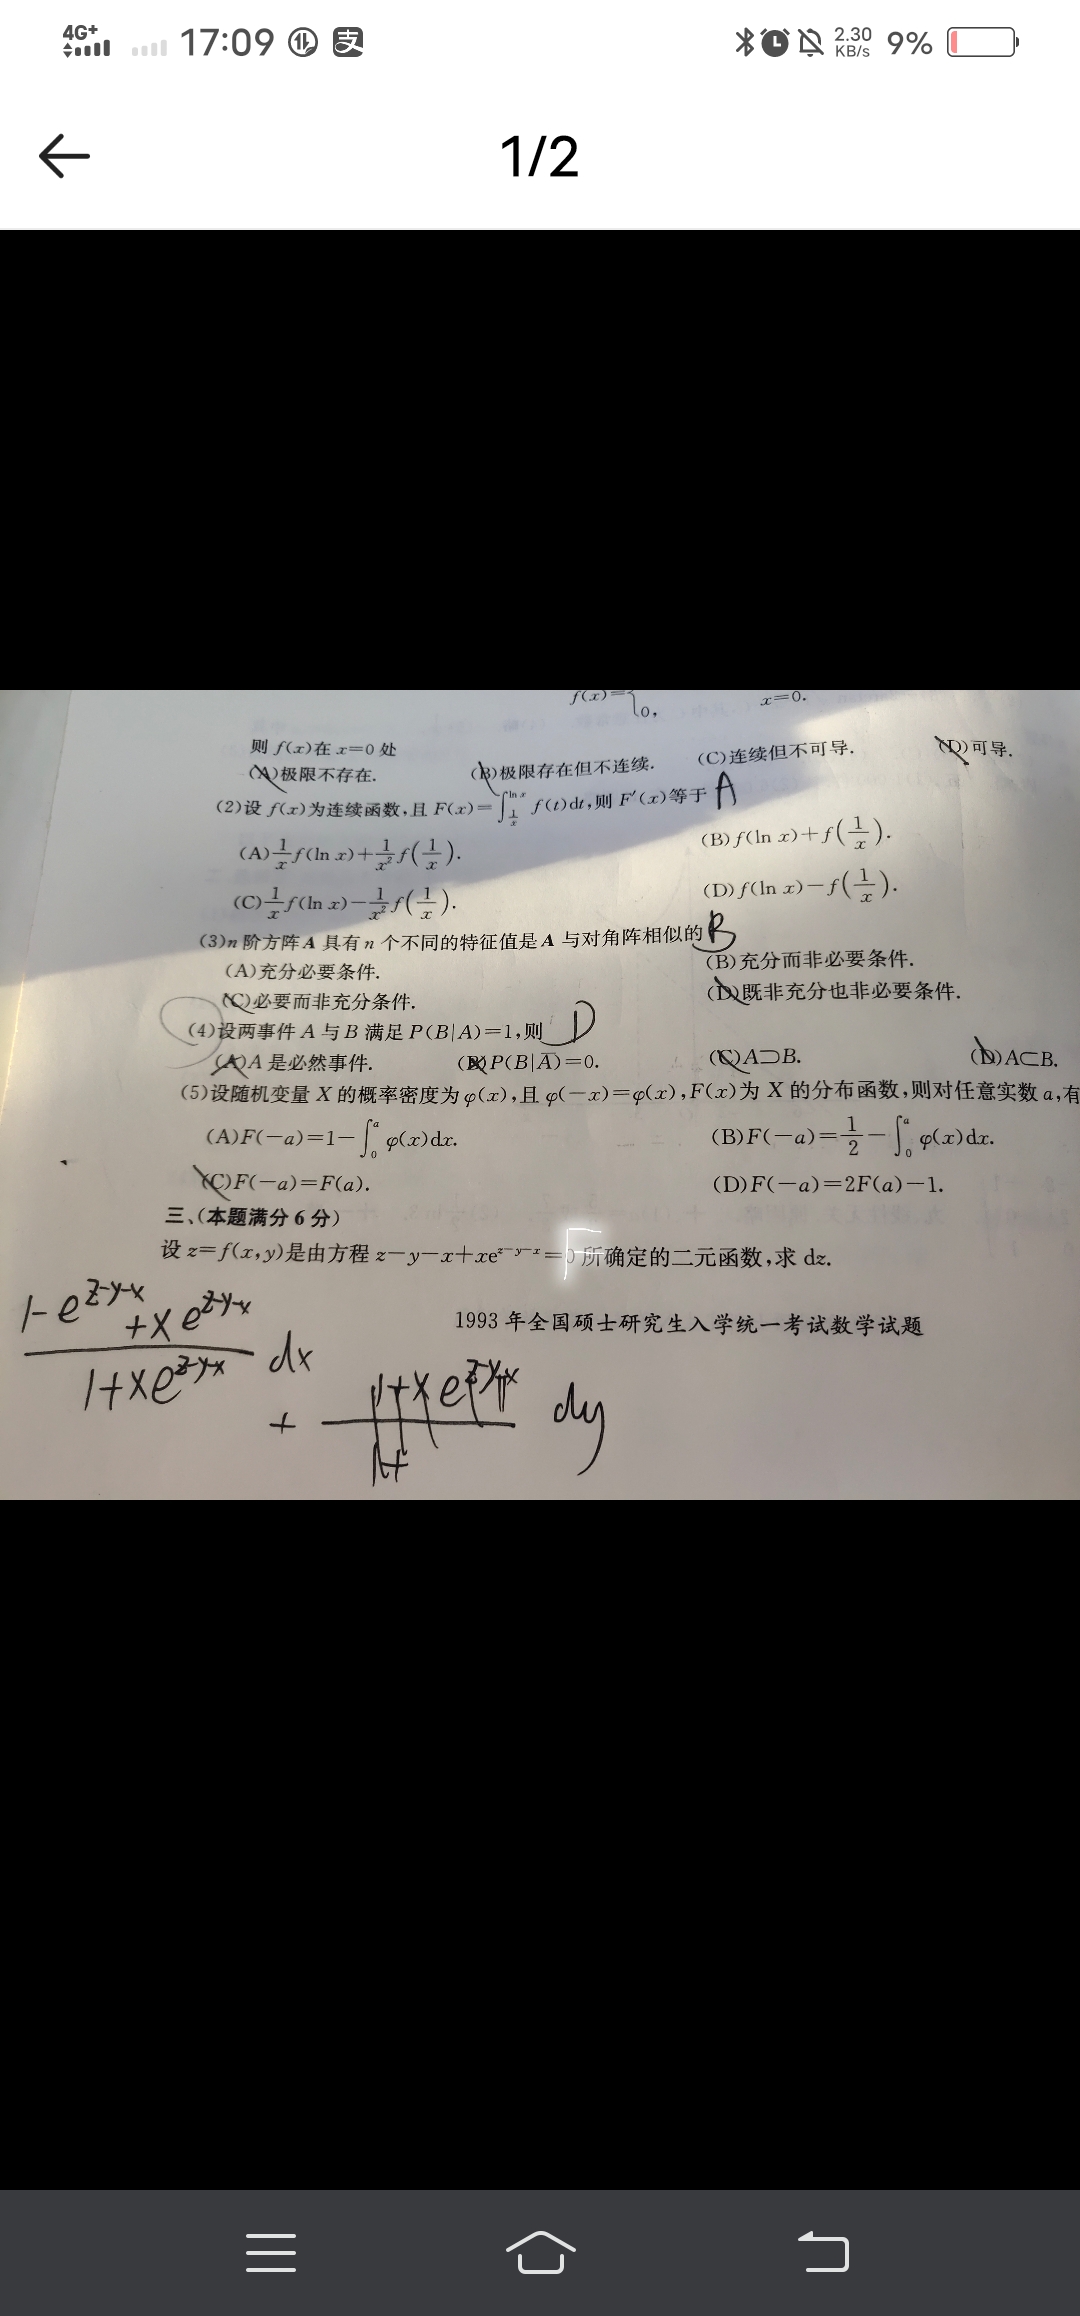 4G+ 17:09 支 2.30 KB/s 9%
1/2
f(x)={
0, x=0.
则 f(x)在 x=0 处
(A)极限不存在. (B)极限存在但不连续. (C)连续但不可导. (D)可导.
(2)设 f(x)为连续函数,且 F(x)=∫_{1/x}^{ln x} f(t)dt,则 F′(x)等于 A
(A) 1/x f(ln x)+1/x² f(1/x). (B) f(ln x)+f(1/x).
(C) 1/x f(ln x)−1/x² f(1/x). (D) f(ln x)−f(1/x).
(3)n 阶方阵 A 具有 n 个不同的特征值是 A 与对角阵相似的 B
(A)充分必要条件. (B)充分而非必要条件.
(C)必要而非充分条件. (D)既非充分也非必要条件.
(4)设两事件 A 与 B 满足 P(B|A)=1,则 D
(A)A 是必然事件. (B)P(B|A̅)=0. (C)A⊃B. (D)A⊂B.
(5)设随机变量 X 的概率密度为 φ(x),且 φ(−x)=φ(x),F(x)为 X 的分布函数,则对任意实数 a,有
(A)F(−a)=1−∫₀ᵃ φ(x)dx. (B)F(−a)=1/2−∫₀ᵃ φ(x)dx.
(C)F(−a)=F(a). (D)F(−a)=2F(a)−1.
三、(本题满分 6 分)
设 z=f(x,y)是由方程 z−y−x+xe^{z−y−x}=0 所确定的二元函数,求 dz.
1-e^{z-y-x}+xe^{z-y-x}
1+xe^{z-y-x} dx
1993 年全国硕士研究生入学统一考试数学试题
+ 1+xe^{z-y-x} dy
1+